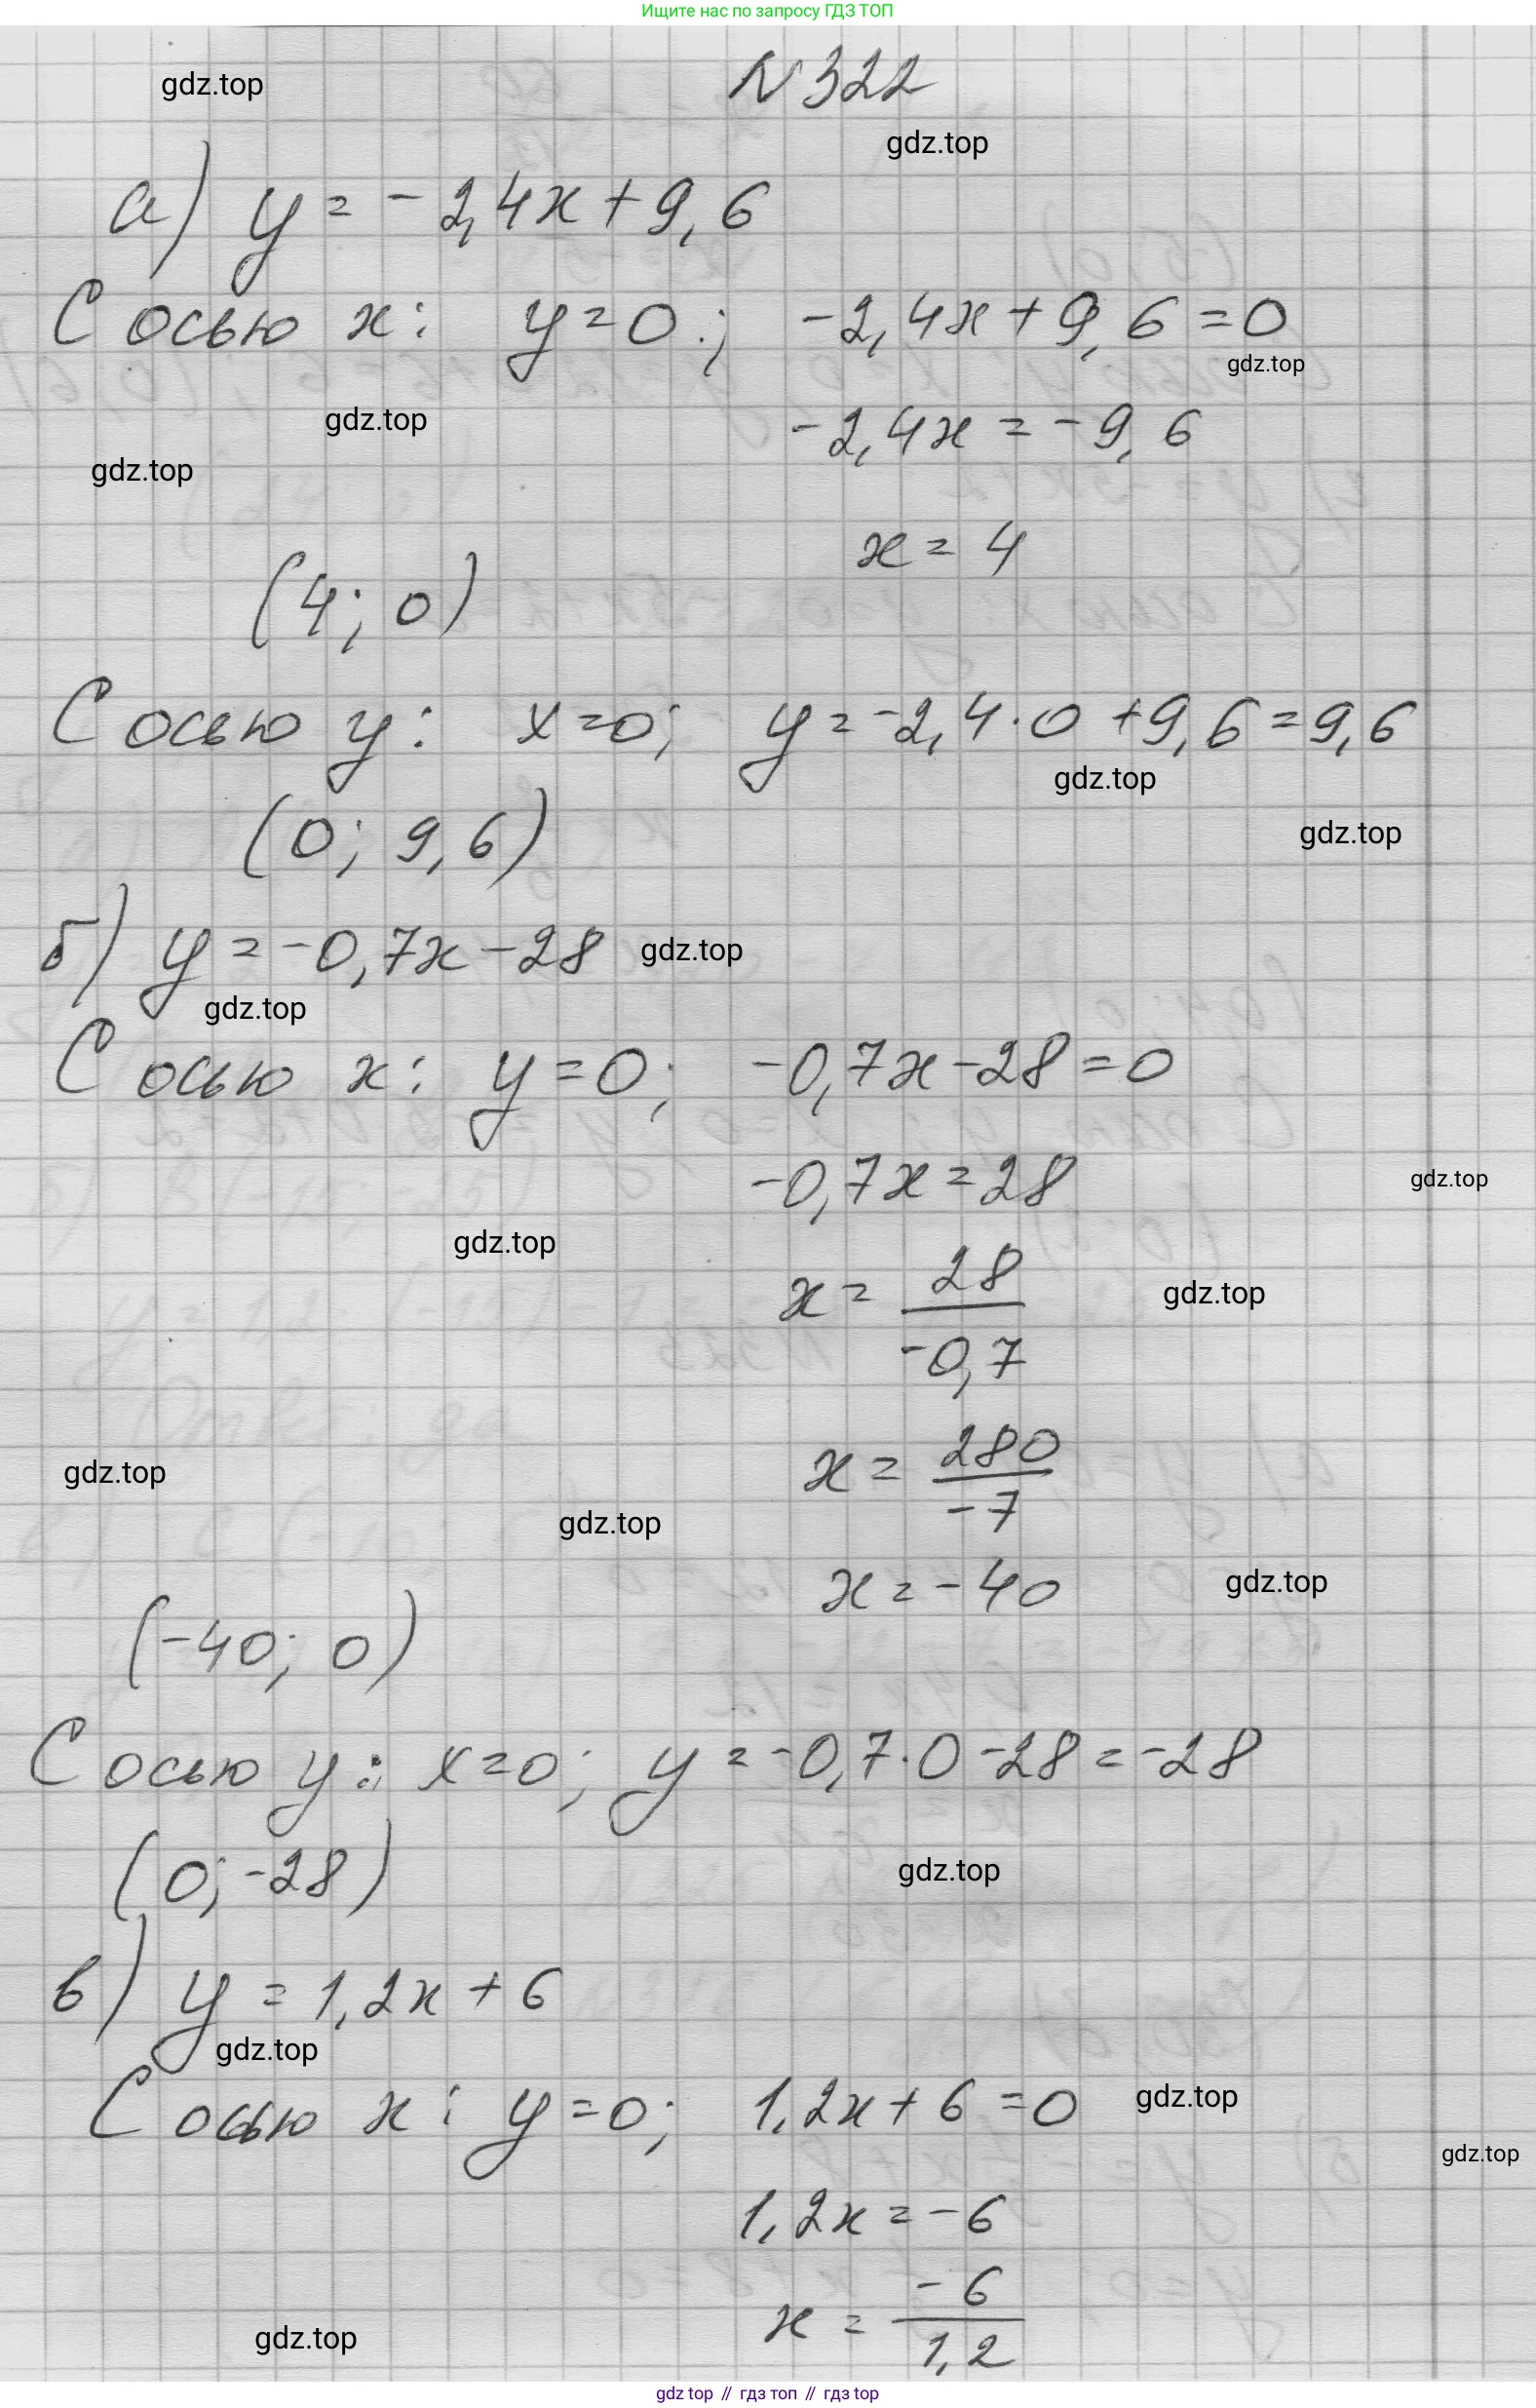 Ищите нас по запросу ГДЗ ТОП
N 322
gdz.top
gdz.top
а) y = -2,4x + 9,6
С осью x: y = 0; -2,4x + 9,6 = 0
gdz.top
gdz.top
-2,4x = -9,6
gdz.top
x = 4
(4; 0)
С осью y: x = 0; y = -2,4 · 0 + 9,6 = 9,6
gdz.top
gdz.top
(0; 9,6)
б) y = -0,7x - 28
gdz.top
gdz.top
С осью x: y = 0; -0,7x - 28 = 0
-0,7x = 28
gdz.top
gdz.top
x = 28 / -0,7
gdz.top
x = 280 / -7
gdz.top
gdz.top
x = -40
gdz.top
(-40; 0)
С осью y: x = 0; y = -0,7 · 0 - 28 = -28
(0; -28)
gdz.top
в) y = 1,2x + 6
gdz.top
С осью x: y = 0; 1,2x + 6 = 0
gdz.top
gdz.top
1,2x = -6
x = -6 / 1,2
gdz.top
gdz top // гдз топ // гдз top